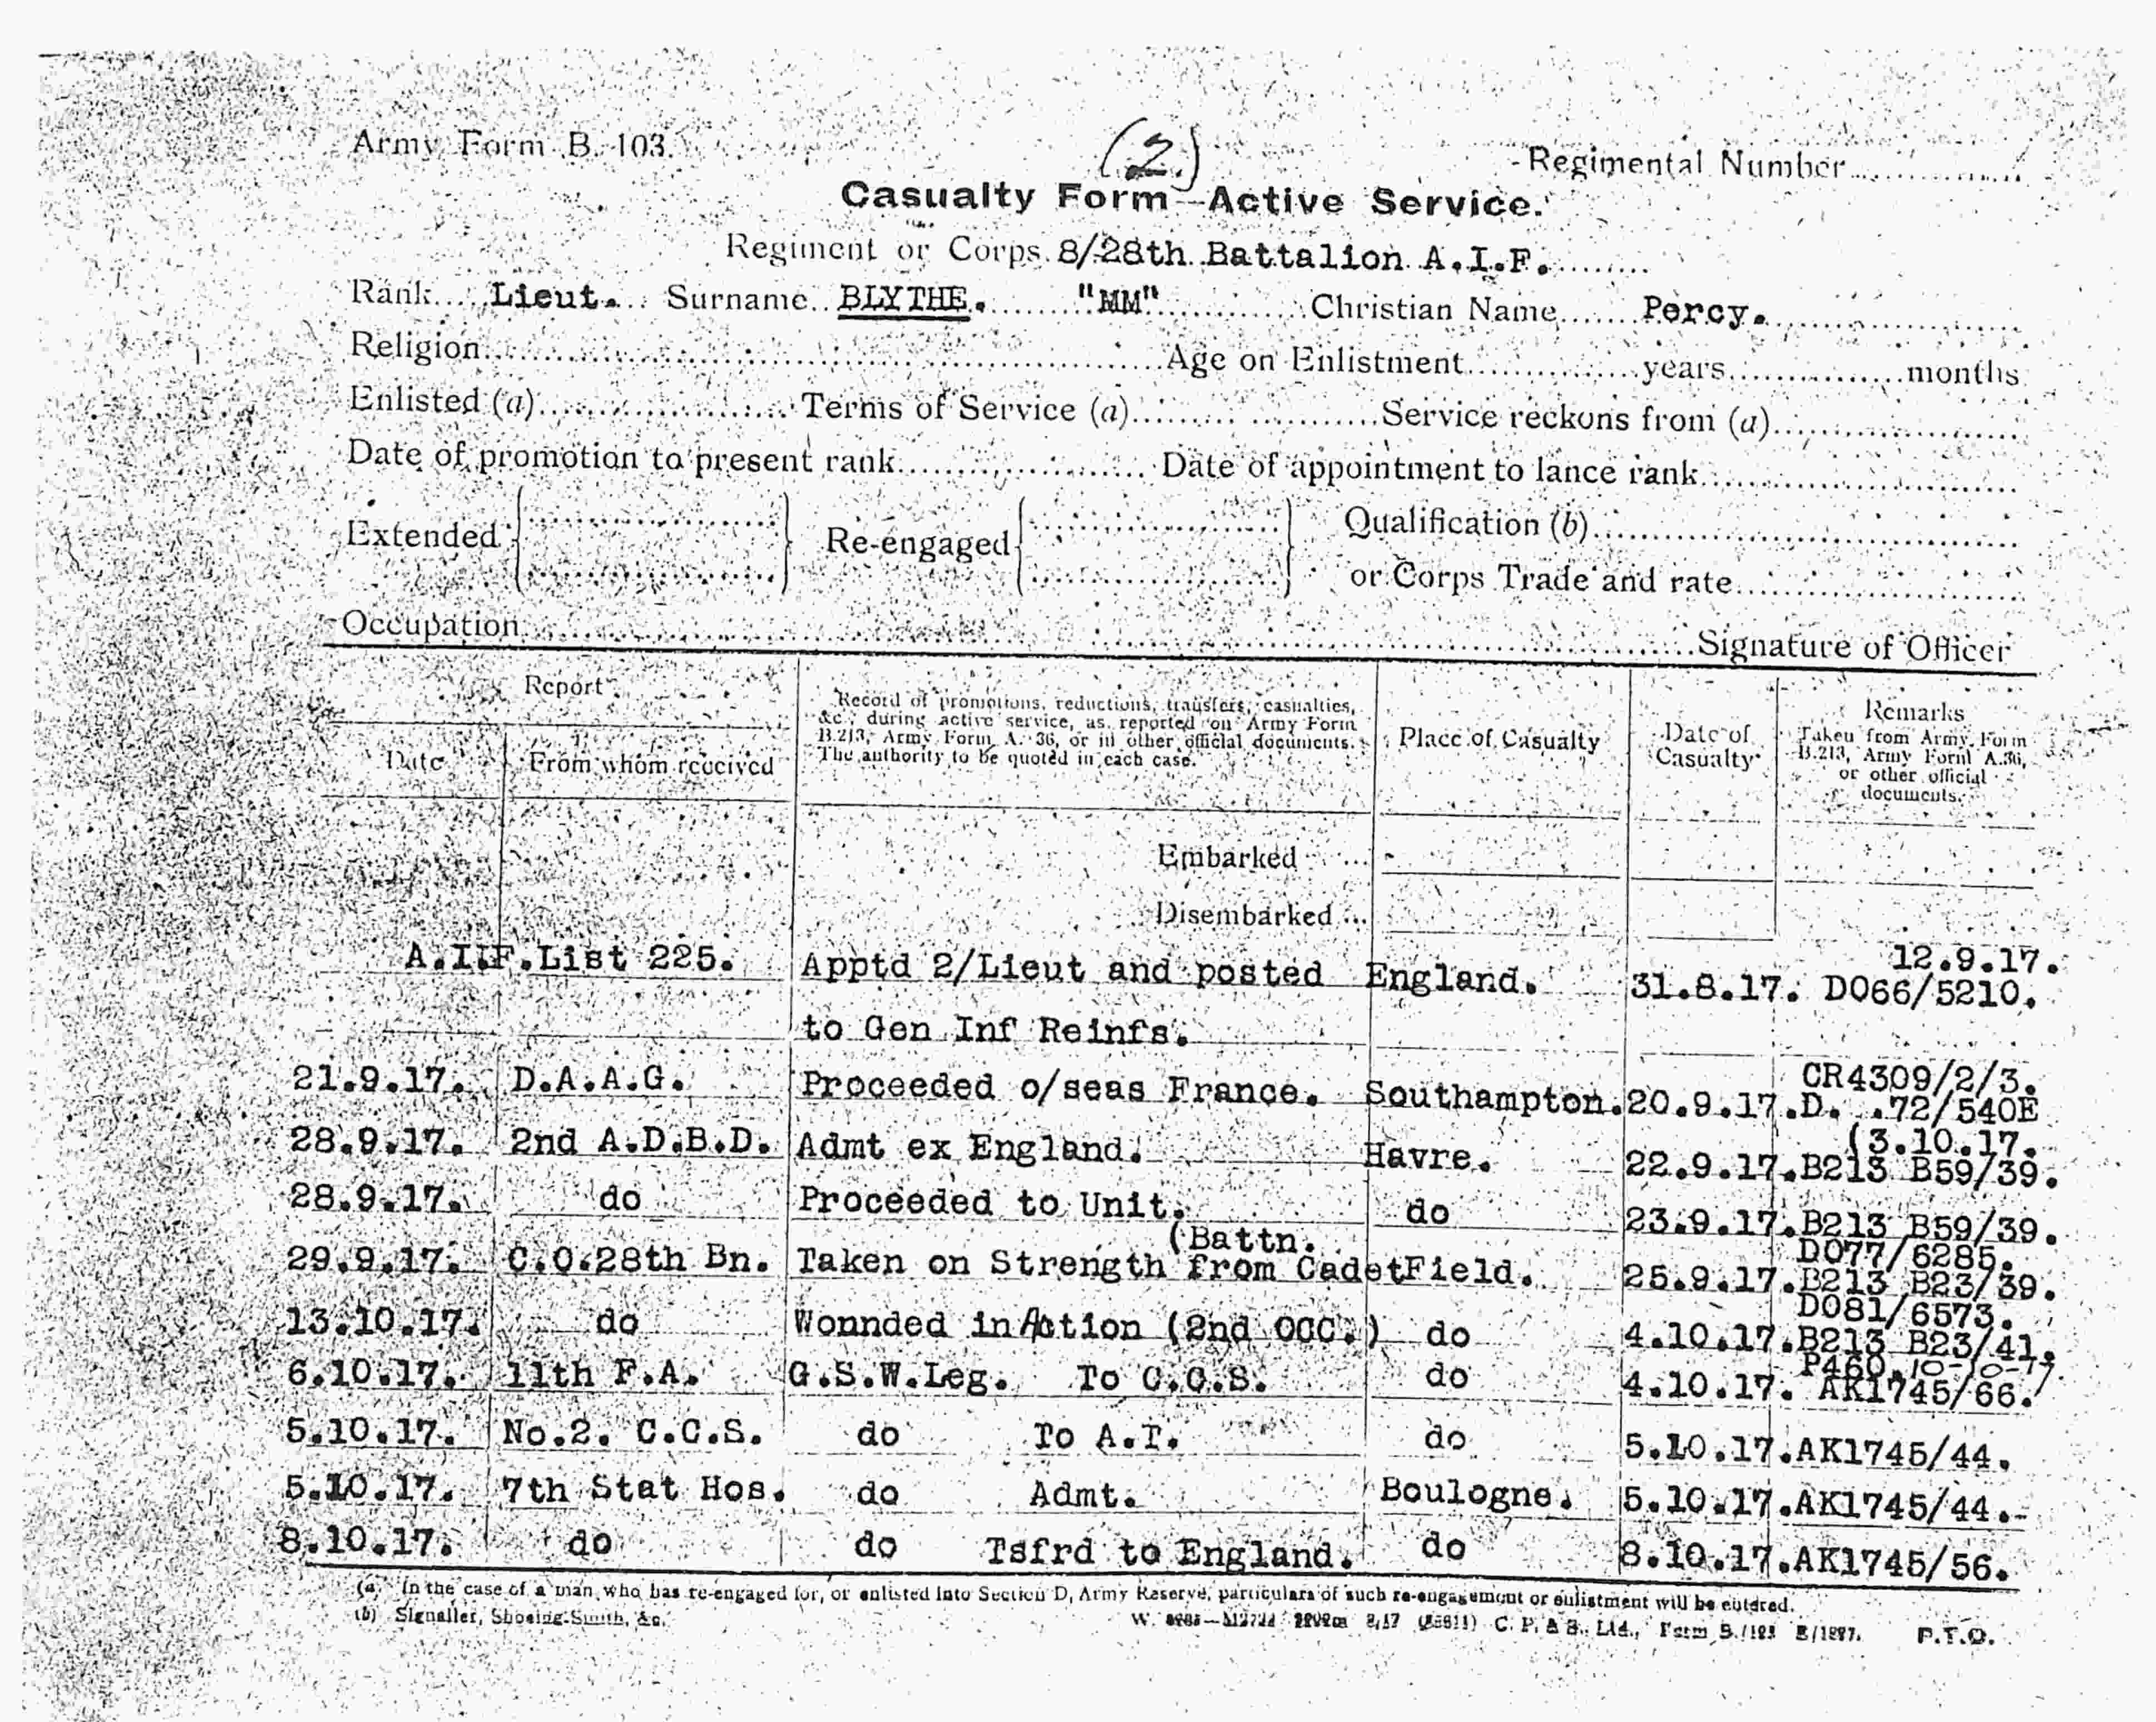 Army Form B. 103.
(2.)
Regimental Number
Casualty Form—Active Service.
Regiment or Corps 8/28th Battalion A.I.F.
Rank Lieut. Surname BLYTHE. "MM" Christian Name Percy.
Religion Age on Enlistment years months
Enlisted (a) Terms of Service (a) Service reckons from (a)
Date of promotion to present rank Date of appointment to lance rank
Extended Re-engaged Qualification (b)
or Corps Trade and rate
Occupation Signature of Officer
Report
Date From whom received
Record of promotions, reductions, transfers, casualties,
&c., during active service, as reported on Army Form
B.213, Army Form A. 36, or in other official documents.
The authority to be quoted in each case.
Place of Casualty
Date of
Casualty
Remarks
Taken from Army Form
B.213, Army Form A.36,
or other official
documents.
Embarked
Disembarked
12.9.17.
A.I.F.List 225. Apptd 2/Lieut and posted England. 31.8.17. DO66/5210.
to Gen Inf Reinfs.
CR4309/2/3.
21.9.17. D.A.A.G. Proceeded o/seas France. Southampton. 20.9.17. D. .72/540E
(3.10.17.
28.9.17. 2nd A.D.B.D. Admt ex England. Havre. 22.9.17. B213 B59/39.
28.9.17. do Proceeded to Unit. do 23.9.17. B213 B59/39.
(Battn. DO77/6285.
29.9.17. C.O.28th Bn. Taken on Strength from Cadet Field. 25.9.17. B213 B23/39.
DO81/6573.
13.10.17. do Wonnded in Action (2nd OCC.) do 4.10.17. B213 B23/41.
P460. 10-10-17.
6.10.17. 11th F.A. G.S.W.Leg. To C.C.S. do 4.10.17. AK1745/66.
5.10.17. No.2. C.C.S. do To A.T. do 5.10.17. AK1745/44.
5.10.17. 7th Stat Hos. do Admt. Boulogne. 5.10.17. AK1745/44.
8.10.17. do do Tsfrd to England. do 8.10.17. AK1745/56.
(a) In the case of a man who has re-engaged for, or enlisted into Section D, Army Reserve, particulars of such re-engagement or enlistment will be entered.
(b) Signaller, Shoeing-Smith, &c.
C. P. & S., Ltd., P.T.O.